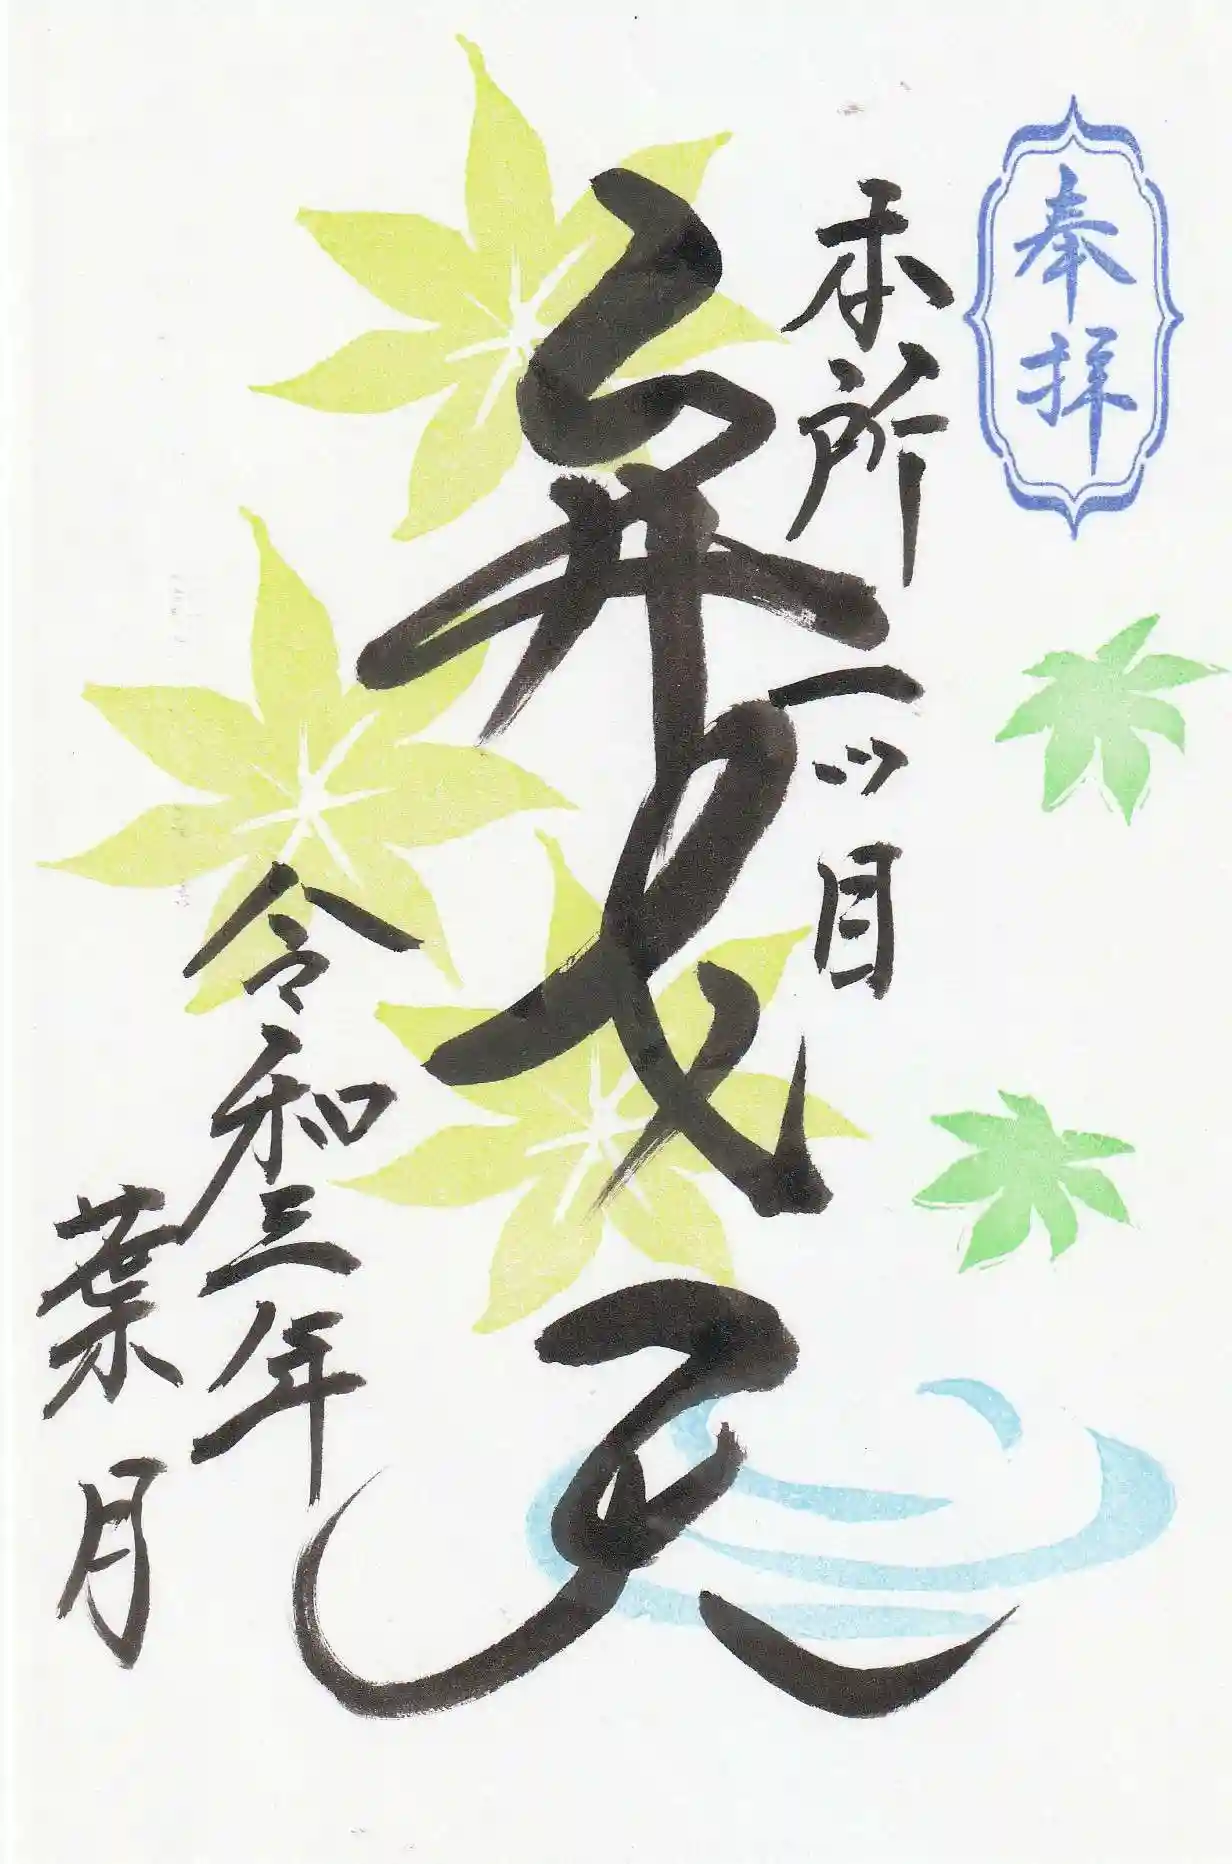 奉拝
本所一ッ目
弁戈天
令和三年
葉月